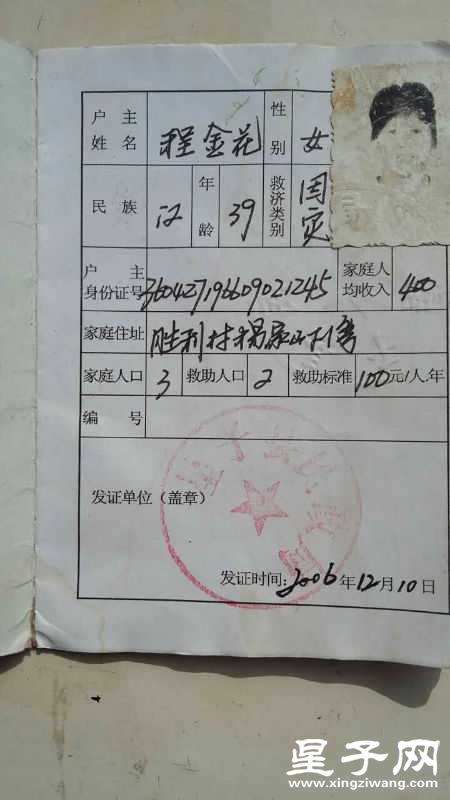 户主姓名 程金花 性别 女
民族 汉 年龄 39 救济类别 固定
户主身份证号 360427196609021245 家庭人均收入 400
家庭住址 胜利村
家庭人口 3 救助人口 2 救助标准 100元/人.年
编号
发证单位(盖章)
星子县民政局
发证时间:2006年12月10日
星子网
www.xingziwang.com